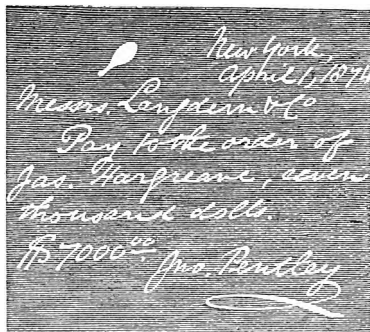 New York,
April 1, 1874
Messrs. Langdern & Co
Pay to the order of
Jas. Hargreave, seven
thousand dolls.
$7000.00
Jno. Pentley